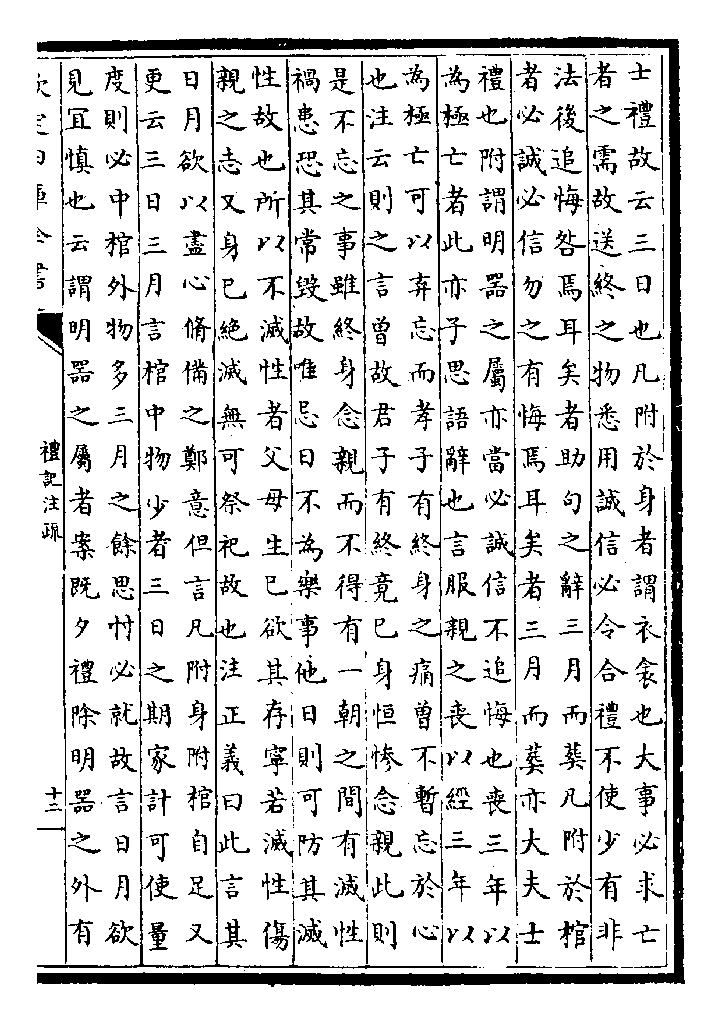 士禮故云三日也凡附於身者謂衣衾也大事必求亡
者之需故送終之物悉用誠信必令合禮不使少有非
法後追悔咎焉耳矣者助句之辭三月而葬凡附於棺
者必誠必信勿之有悔焉耳矣者三月而葬亦大夫士
禮也附謂明器之屬亦當必誠信不追悔也喪三年以
為極亡者此亦子思語辭也言服親之喪以經三年以
為極亡可以弃忘而孝子有終身之痛曽不暫忘於心
也注云則之言曽故君子有終竟已身恒慘念親此則
是不忘之事雖終身念親而不得有一朝之間有滅性
禍患恐其常毀故唯忌日不為樂事他日則可防其滅
性故也所以不滅性者父母生已欲其存寧若滅性傷
親之志又身已絶滅無可祭祀故也注正義曰此言其
日月欲以盡心脩備之鄭意但言凡附身附棺自足又
更云三日三月言棺中物少者三日之期家計可使量
度則必中棺外物多三月之餘思忖必就故言日月欲
見宜慎也云謂明器之屬者案既夕禮除明器之外有
欽定四庫全書
禮記注疏
十二